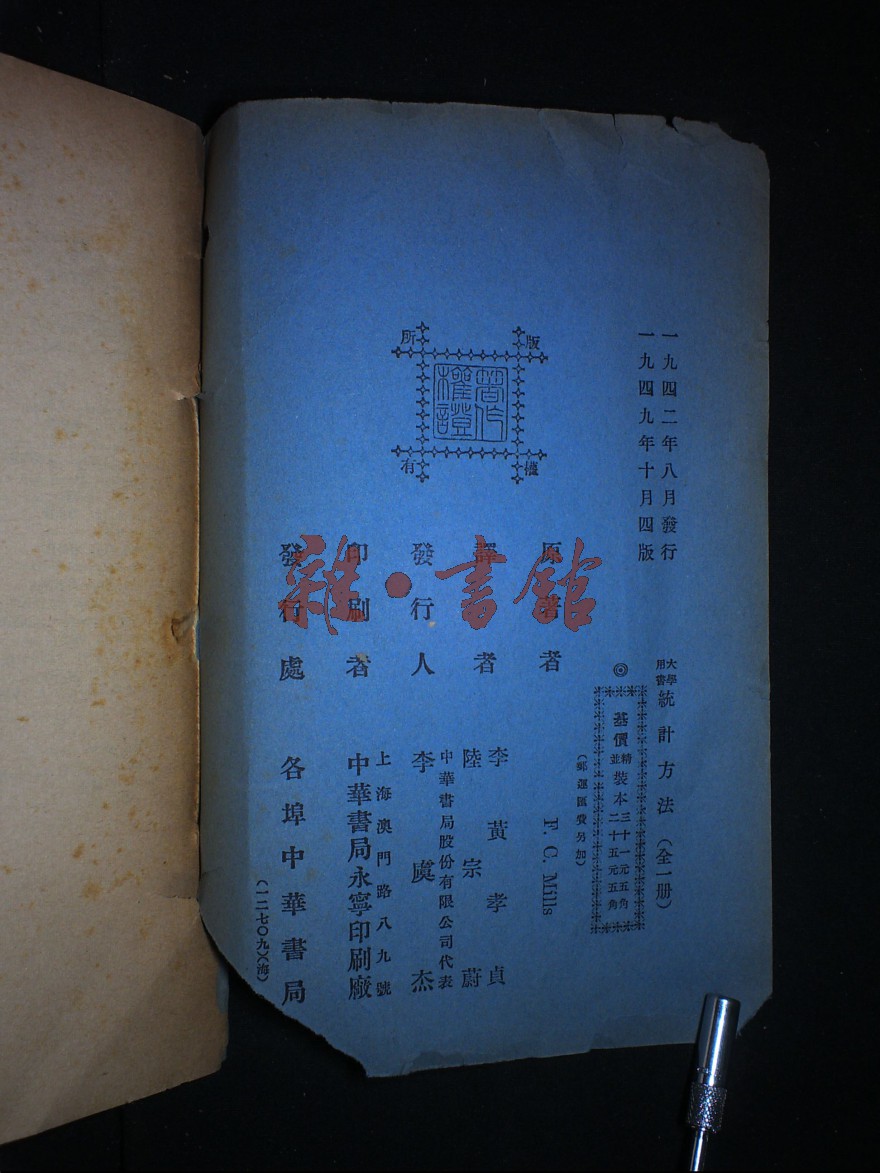 一九四二年八月發行
一九四九年十月四版
大學用書 統計方法（全一册）
◎基價 精裝本三十一元五角
並裝本二十五元五角
（郵運匯費另加）
原著者 F. C. Mills
譯者 李黃孝貞
陸宗蔚
發行人 李虞杰
中華書局股份有限公司代表
印刷者 中華書局永寧印刷廠
上海澳門路八九號
發行處 各埠中華書局
（一二七〇九）（海）
版權所有
著作權證
雜·書館